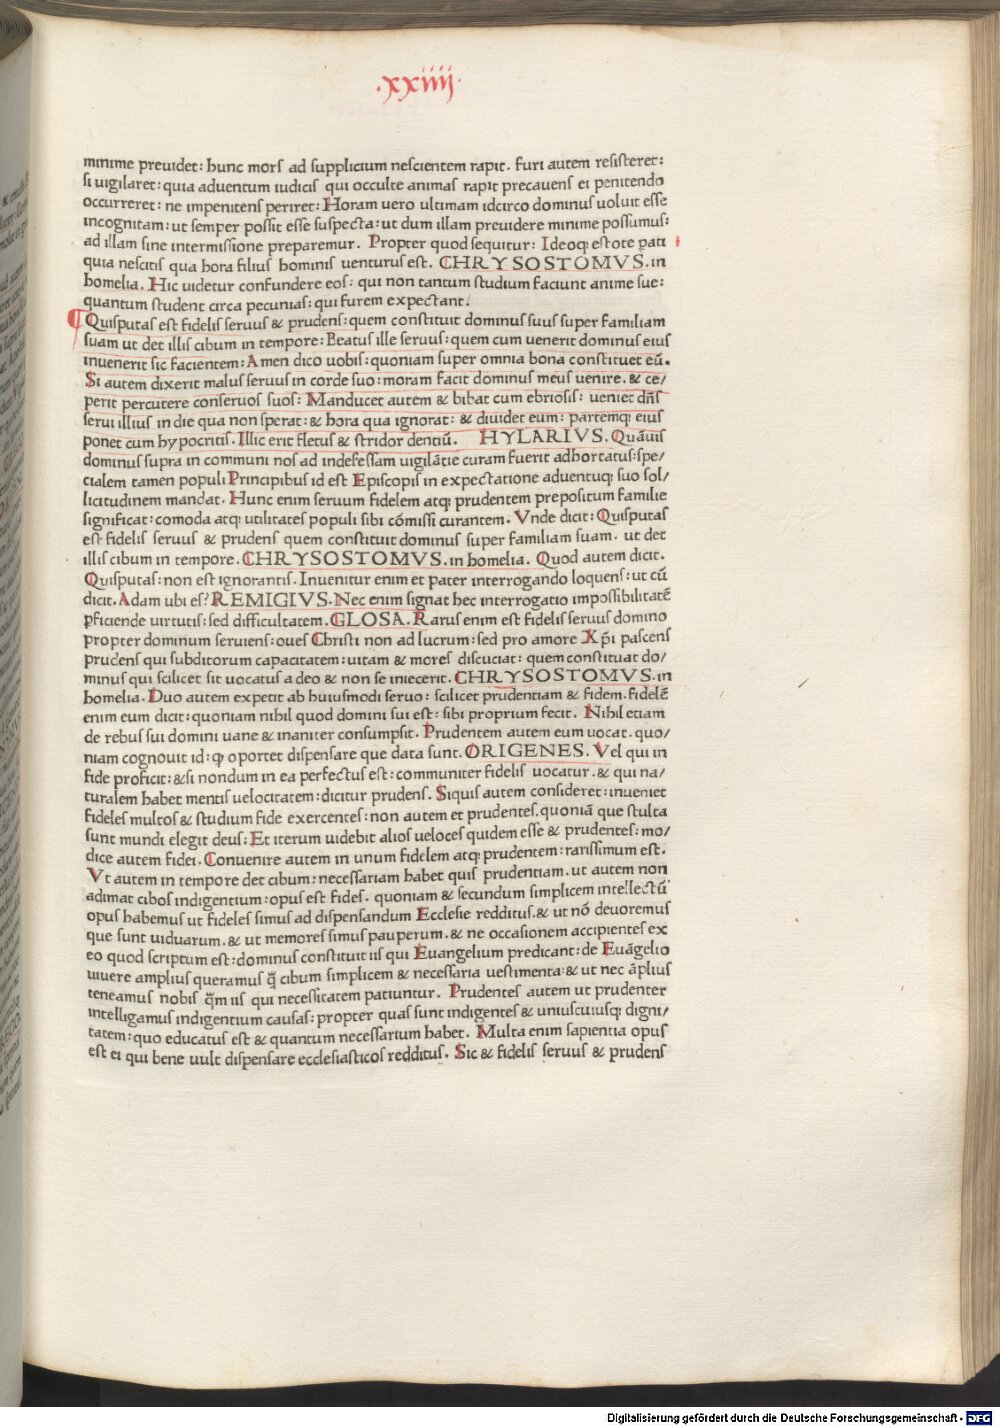 .xxiiij.
minime preuidet: hunc mors ad supplicium nescientem rapit. Furi autem resisteret:
si uigilaret: quia aduentum iudicis qui occulte animas rapit precauens ei penitendo
occurreret: ne impenitens periret: Horam uero ultimam idcirco dominus uoluit esse
incognitam: ut semper possit esse suspecta: ut dum illam preuidere minime possumus:
ad illam sine intermissione preparemur. Propter quod sequitur: Ideoq; estote ꝑati
quia nescitis qua hora filius hominis uenturus est. CHRYSOSTOMVS. in
homelia. Hic uidetur confundere eos: qui non tantum studium faciunt anime sue:
quantum student circa pecunias: qui furem expectant.
¶ Quisputas est fidelis seruus & prudens: quem constituit dominus suus super familiam
suam ut det illis cibum in tempore: Beatus ille seruus: quem cum uenerit dominus eius
inuenerit sic facientem: Amen dico uobis: quoniam super omnia bona constituet eū.
Si autem dixerit malus seruus in corde suo: moram facit dominus meus uenire. & ce/
perit percutere conseruos suos: Manducet autem & bibat cum ebriosis: ueniet dn̄s
serui illius in die qua non sperat: & hora qua ignorat: & diuidet eum: partemq; eius
ponet cum hypocritis. Illic erit fletus & stridor dentiū. HYLARIVS. Quāuis
dominus supra in communi nos ad indefessam uigilātie curam fuerit adhortatus: spe/
cialem tamen populi Principibus id est Episcopis in expectatione aduentuq; suo sol/
licitudinem mandat. Hunc enim seruum fidelem atq; prudentem prepositum familie
significat: comoda atq; utilitates populi sibi cōmissi curantem. Vnde dicit: Quisputas
est fidelis seruus & prudens quem constituit dominus super familiam suam. ut det
illis cibum in tempore. CHRYSOSTOMVS. in homelia. Quod autem dicit.
Quisputas: non est ignorantis. Inuenitur enim et pater interrogando loquens: ut cū
dicit. Adam ubi es? REMIGIVS. Nec enim signat hec interrogatio impossibilitatē
ꝑficiende uirtutis: sed difficultatem. GLOSA. Rarus enim est fidelis seruus domino
propter dominum seruiens: oues Christi non ad lucrum: sed pro amore Xp̄i pascens
prudens qui subditorum capacitatem: uitam & mores discuciat: quem constituat do/
minus qui scilicet sit uocatus a deo & non se iniecerit. CHRYSOSTOMVS. in
homelia. Duo autem expetit ab huiusmodi seruo: scilicet prudentiam & fidem. fidelē
enim eum dicit: quoniam nihil quod domini sui est: sibi proprium fecit. Nihil etiam
de rebus sui domini uane & inaniter consumpsit. Prudentem autem eum uocat. quo/
niam cognouit id: ꝙ oportet dispensare que data sunt. ORIGENES. Vel qui in
fide proficit: & si nondum in ea perfectus est: communiter fidelis uocatur. & qui na/
turalem habet mentis uelocitatem: dicitur prudens. Siquis autem consideret: inueniet
fideles multos & studium fide exercentes: non autem et prudentes. quoniā que stulta
sunt mundi elegit deus: Et iterum uidebit alios ueloces quidem esse & prudentes: mo/
dice autem fidei. Conuenire autem in unum fidelem atq; prudentem: rarissimum est.
Vt autem in tempore det cibum: necessariam habet quis prudentiam. ut autem non
adimat cibos indigentium: opus est fides. quoniam & secundum simplicem intellectū
opus habemus ut fideles simus ad dispensandum Ecclesie redditus. & ut nō deuoremus
que sunt uiduarum. & ut memores simus pauperum. & ne occasionem accipientes ex
eo quod scriptum est: dominus constituit iis qui Euangelium predicant: de Euāgelio
uiuere amplius queramus q̄̄ cibum simplicem & necessaria uestimenta: & ut nec āplius
teneamus nobis q̄m iis qui necessitatem patiuntur. Prudentes autem ut prudenter
intelligamus indigentium causas: propter quas sunt indigentes & uniuscuiusq; digni/
tatem: quo educatus est & quantum necessarium habet. Multa enim sapientia opus
est ei qui bene uult dispensare ecclesiasticos redditus. Sic & fidelis seruus & prudens
Digitalisierung gefördert durch die Deutsche Forschungsgemeinschaft - DFG